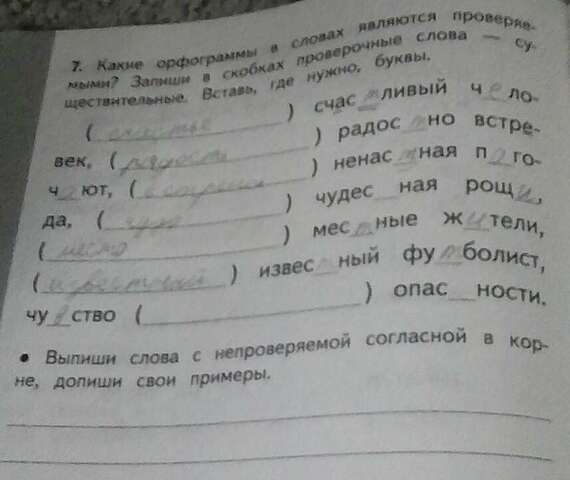 7. Какие орфограммы в словах являются проверяе-
мыми? Запиши в скобках проверочные слова — су-
ществительные. Вставь, где нужно, буквы.
( счастье ) счас т ливый ч е ло-
век, ( радость ) радос т но встре-
ч а ют, ( ) ненас т ная п о го-
да, ( чудо ) чудес _ ная рощ и,
( место ) мес т ные ж и тели,
( ) извес т ный фу т болист,
чу в ство ( ) опас _ ности.
• Выпиши слова с непроверяемой согласной в кор-
не, допиши свои примеры.